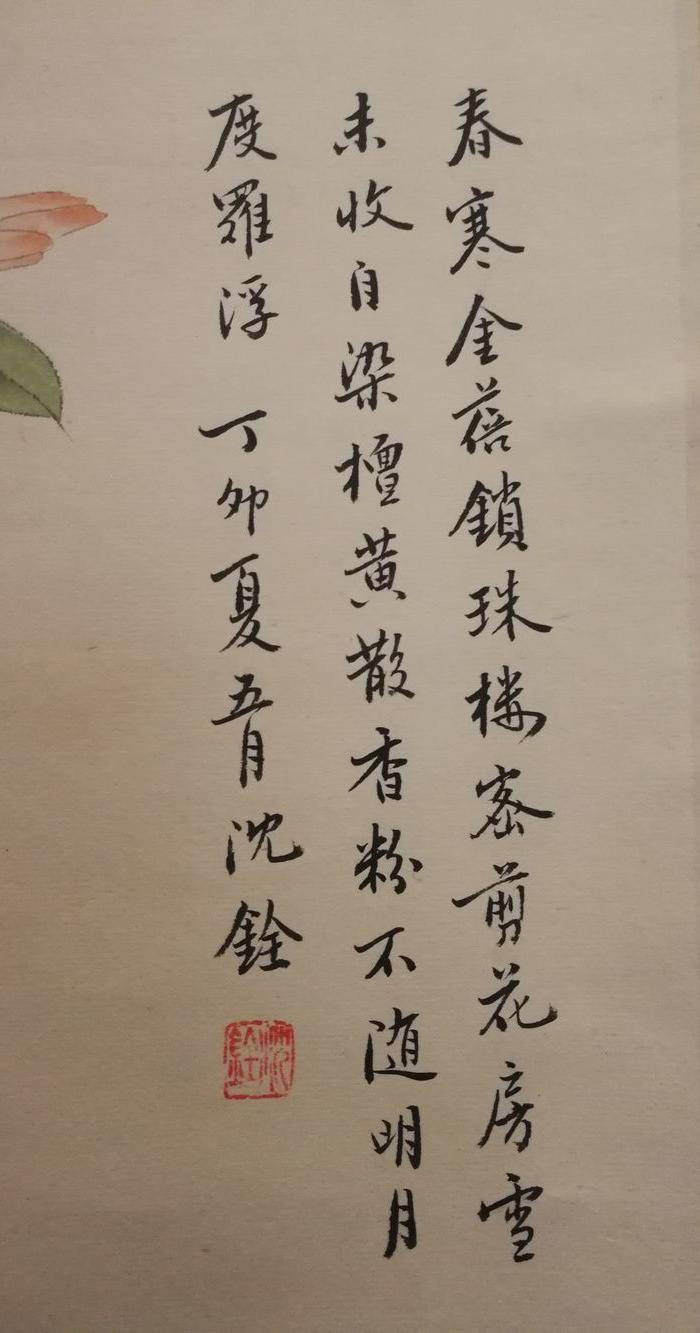 春寒金蓓鎖珠樓密剪花房雪
未收自染檀黄散香粉不随明月
度羅浮 丁卯夏五月沈銓
沈銓